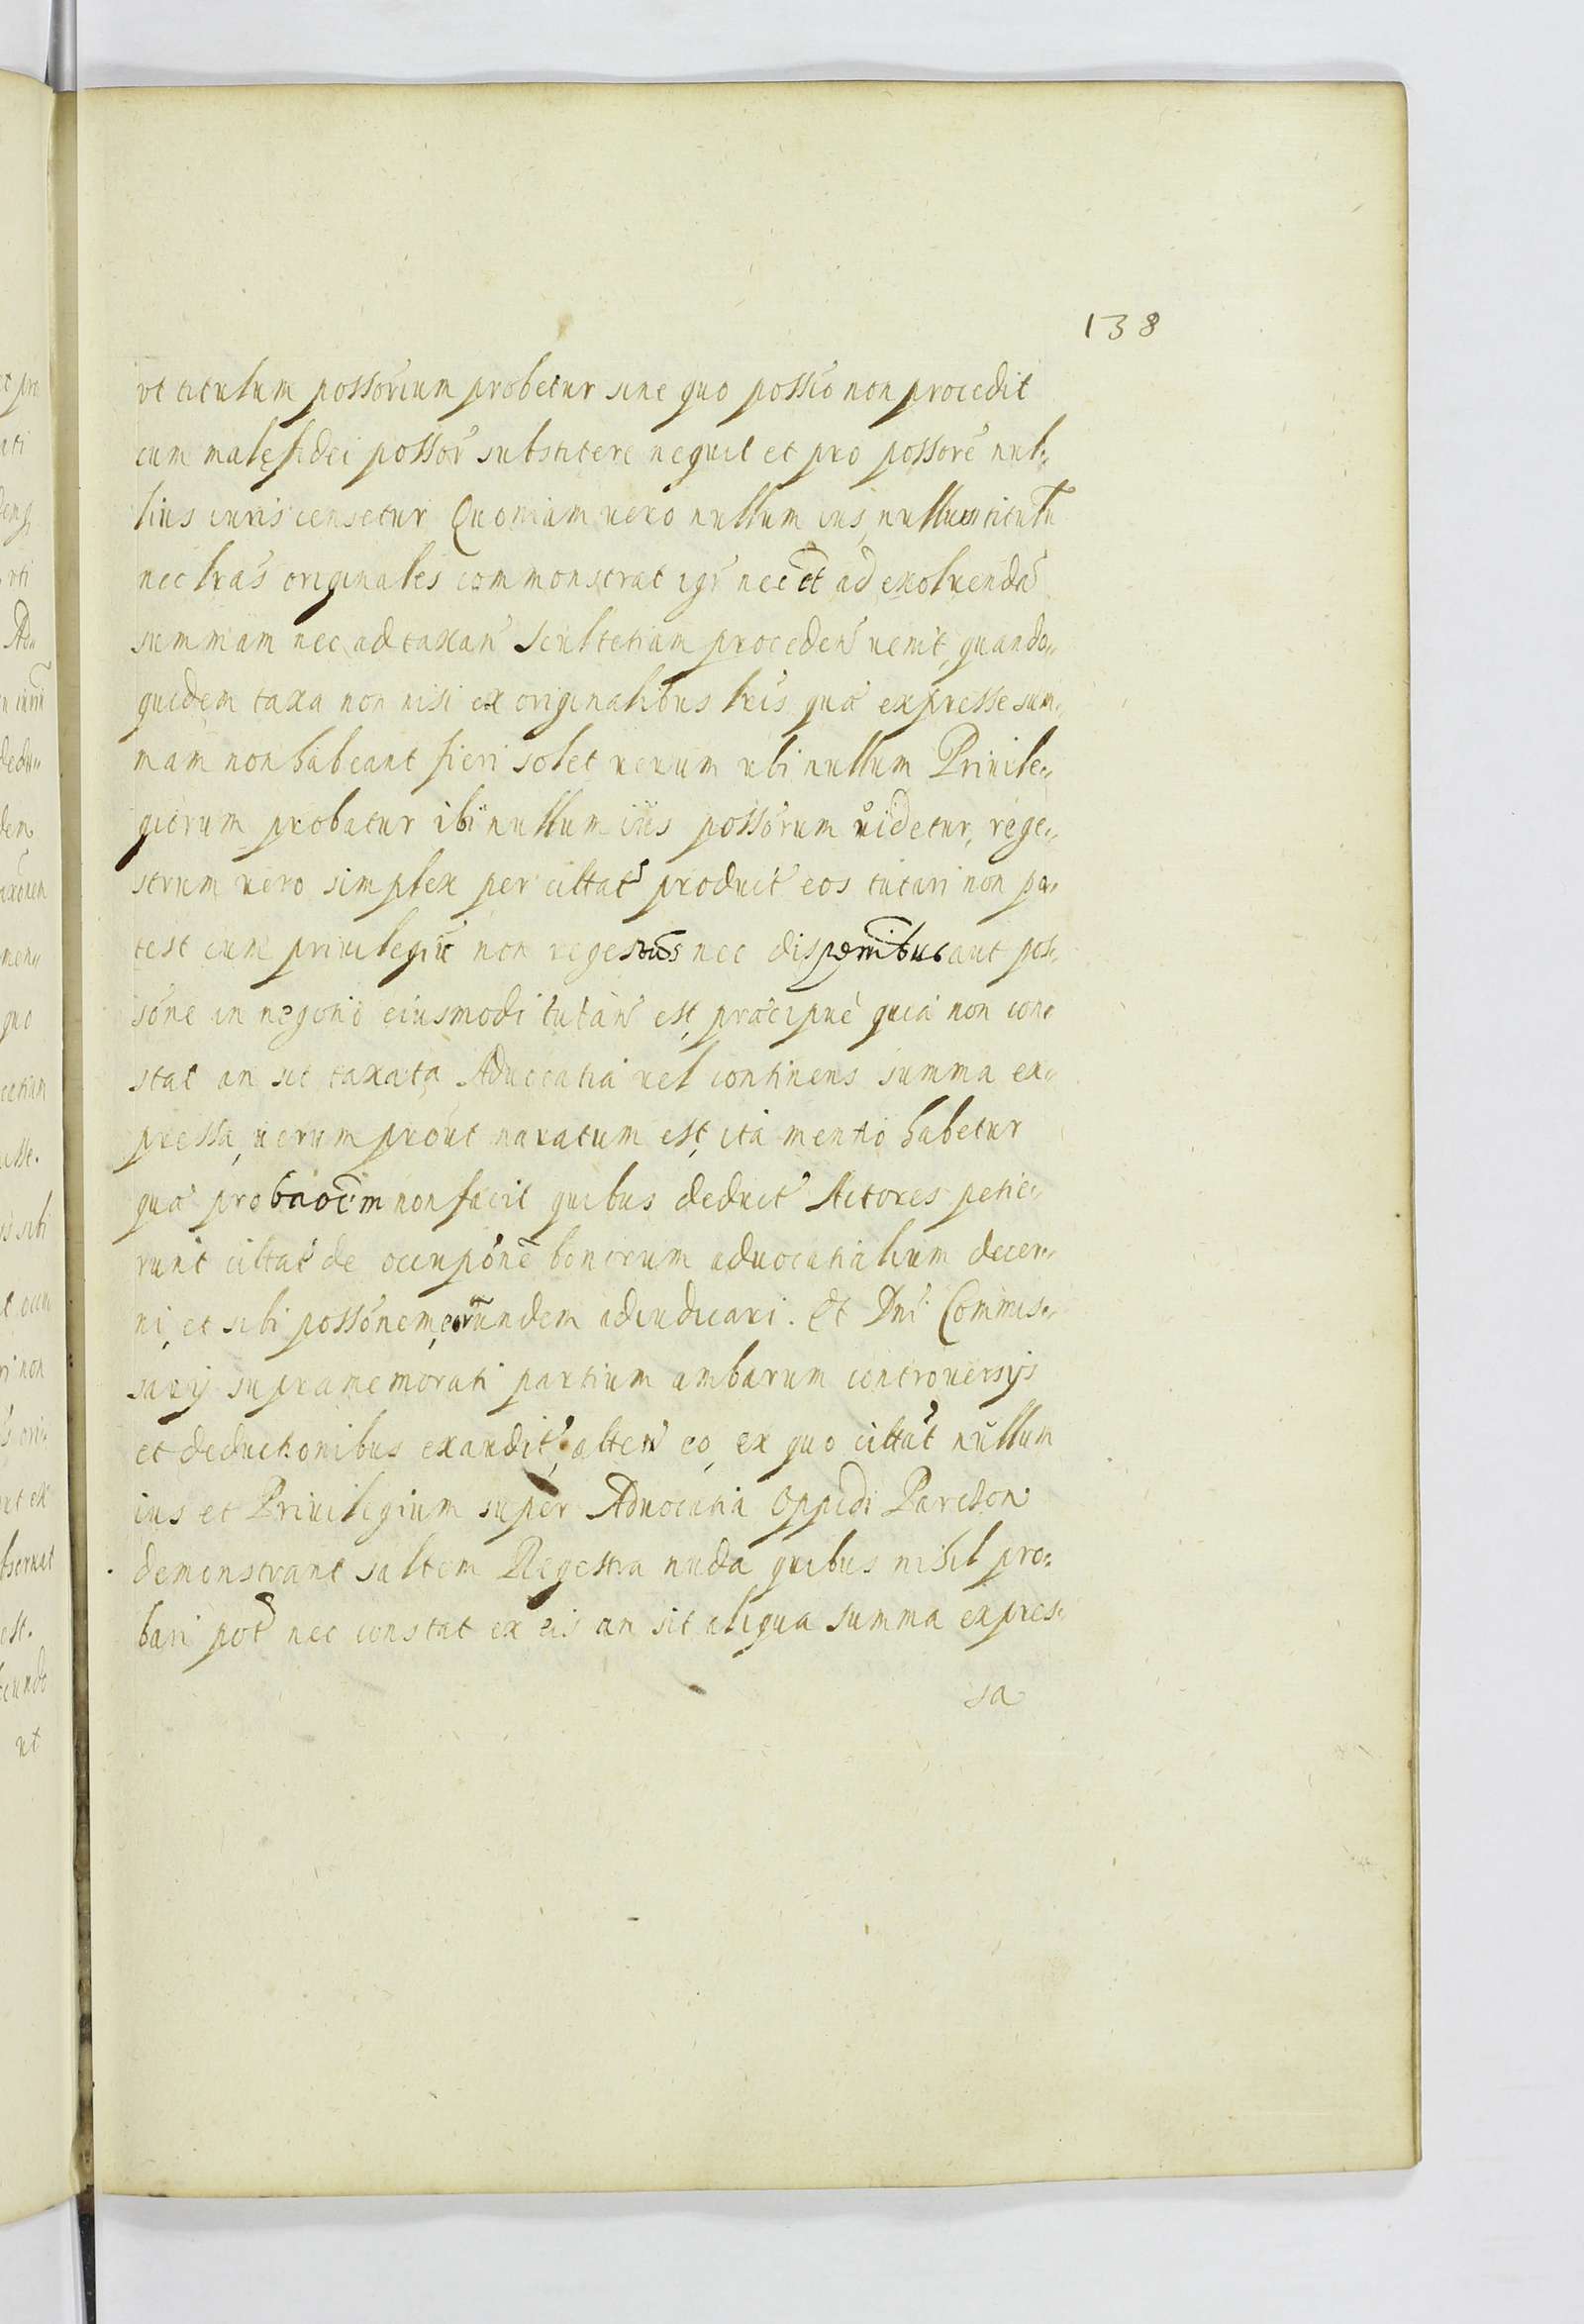 138
vt titulum possorium probetur sine quo possio non procedit
cum malę fidei possor substitere nequit et pro possore nul„
lius iuris censetur Quoniam uero nullum ius, nullum titulū
nec lras originales commonstrat igr nec et ad exoluendā
summam nec ad taxan Scultetiam proceden uenit, quando„
quidem taxa non nisi ex originalibus lris quæ expresse sum„
mam non habeant fieri solet uerum ubi nullum Priuile„
giorum probatur ibi nullum ius possorum uidetur, rege„
strum uero simplex per cittat product eos tutari non po„
test cum priuilegiis non regestris nec
sone in negotio eiusmodi tutan est, præcipuè quia non con„
stat an sit taxata Aduocatia uel continens summa ex„
pressa, uerum prout naratum est, ita mentio habetur
quæ probaoem non facit quibus deduct Actores petie„
runt cittat de occupone bonorum aduocatialium decer„
ni, et sibi possonem, eorundem adiudicari. Et Dni Commis„
sarij supramemorati partium ambarum controuersijs
et deductionibus exaudit, alten eo, ex quo cittat nullum
ius et Priuilegium super Aduocatia Oppidi Parczow
demonstrant saltem Regestra nuda quibus nihil pro„
bari pot nec constat ex eis an sit aliqua summa expres„
sa